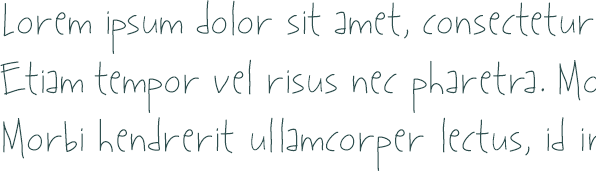 Lorem ipsum dolor sit amet, consectetur
Etiam tempor vel risus nec pharetra. Mo
Morbi hendrerit ullamcorper lectus, id in